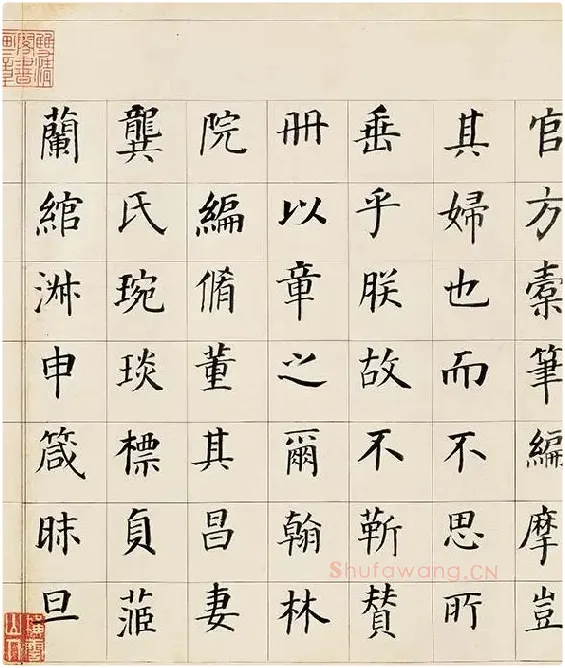 官方橐筆編摩豈
其婦也而不思所
垂乎朕故不靳賛
冊以章之爾翰林
院編脩董其昌妻
龔氏琬琰標貞茝
蘭綰淑申箴昧旦
Shufawang.CN